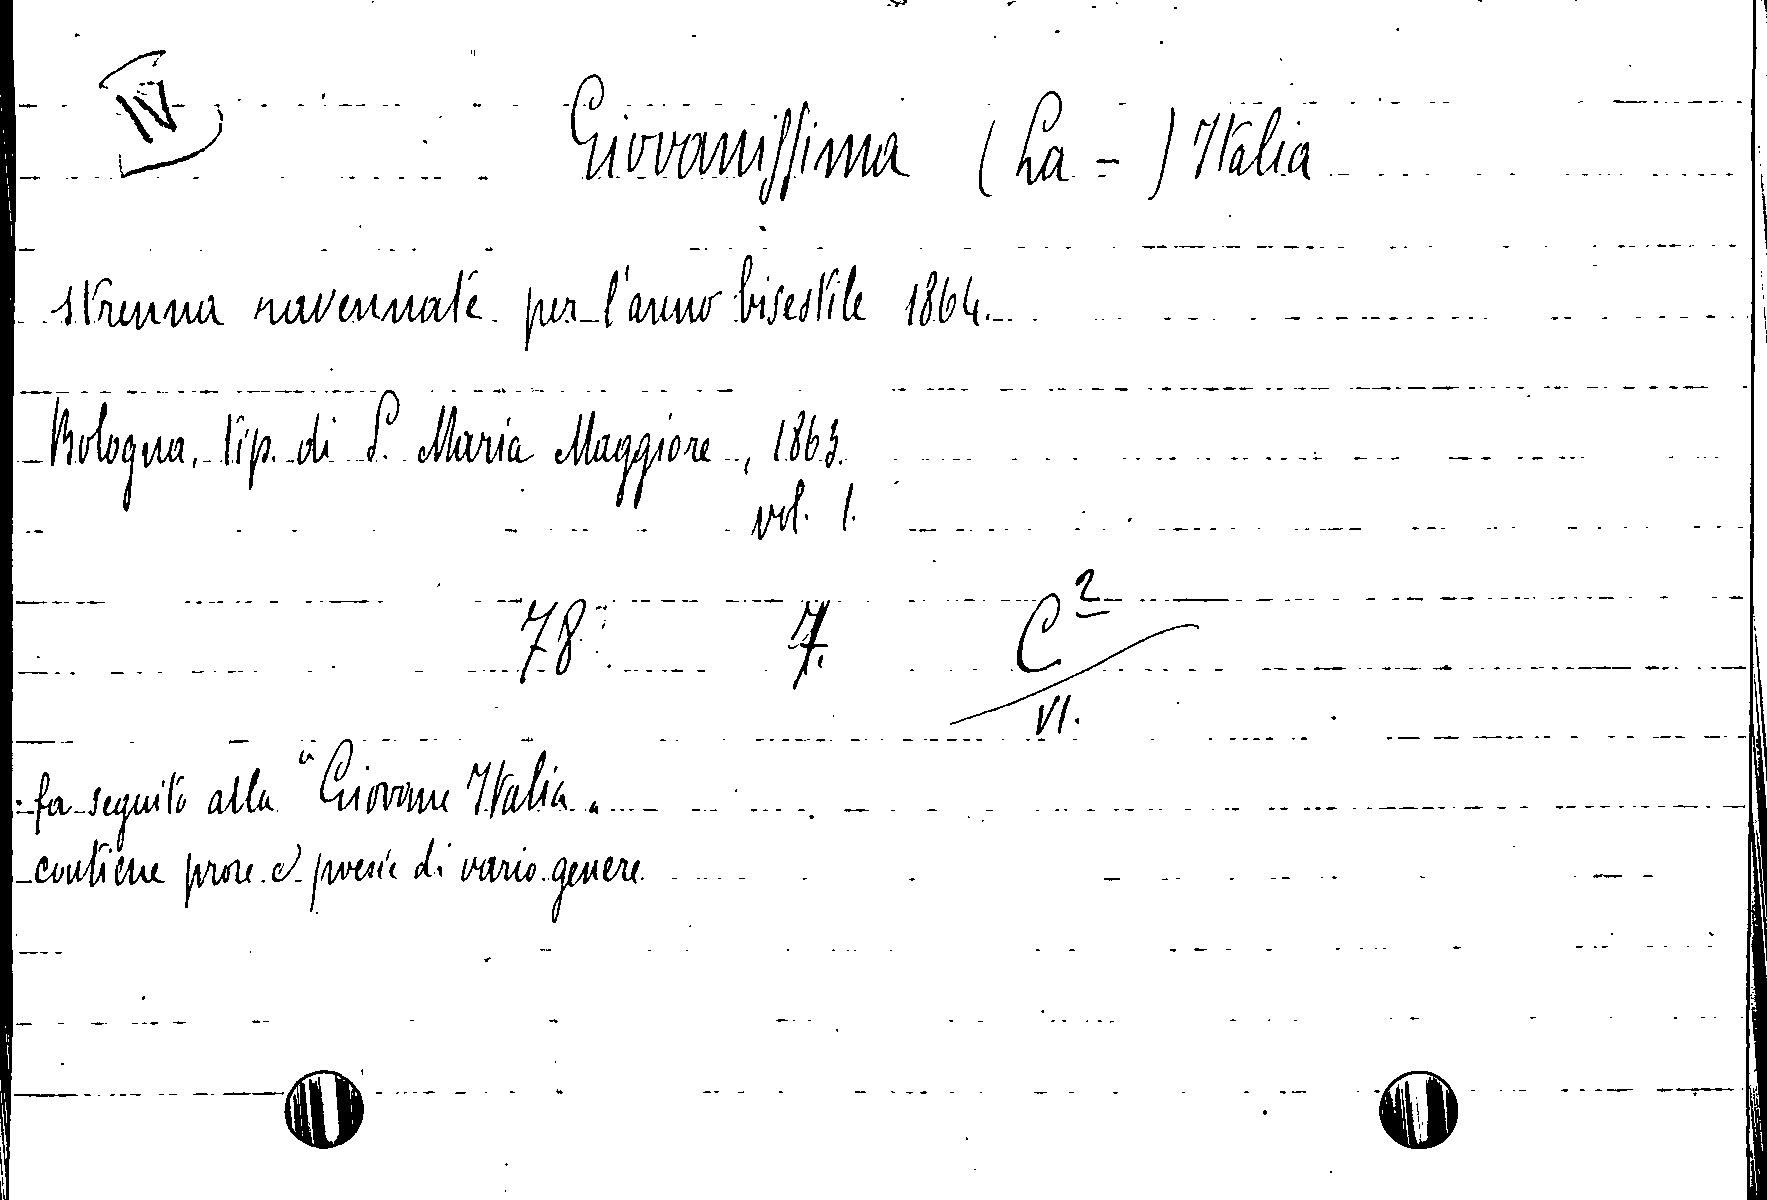 IV
Giovanissima (La -) Italia
strenna ravennate per l'anno bisestile 1864.
Bologna, tip. di S. Maria Maggiore, 1863.
vol. 1.
78 7. C²
VI.
fa seguito alla "Giovane Italia"
contiene prose e poesie di vario genere